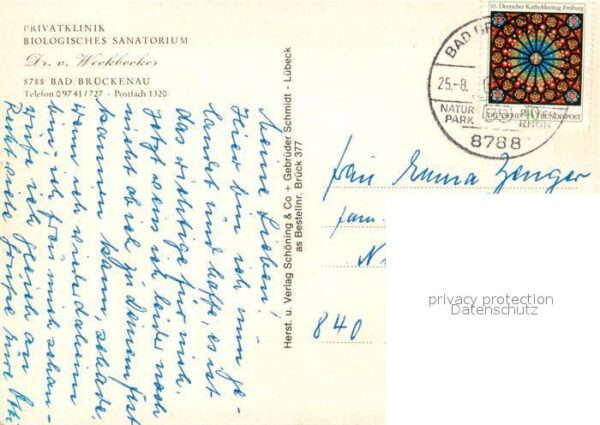 PRIVATKLINIK
BIOLOGISCHES SANATORIUM
Dr. v. Weckbecker
8788 BAD BRÜCKENAU
Telefon 0 97 41 / 727 · Postfach 1320
Meine Lieben!
Hier bin ich nun ge-
landet und hoffe, es ist
das richtige für mich.
Jetzt weiß ich leider noch
nicht ob ich zu Deinem Fest
kommen kann, schade.
Wenn ich wieder daheim
bin, ich freu mich schon
rufe ich gleich an
Herst. u. Verlag Schöning & Co + Gebrüder Schmidt - Lübeck
as Bestellnr. Brück 377
93. Deutscher Katholikentag Freiburg
DEUTSCHE BUNDESPOST
40
BAD
25.-8.
NATUR
PARK
RHÖN
8788
Frau Emma Zenger
Fam.
N
840
privacy protection
Datenschutz